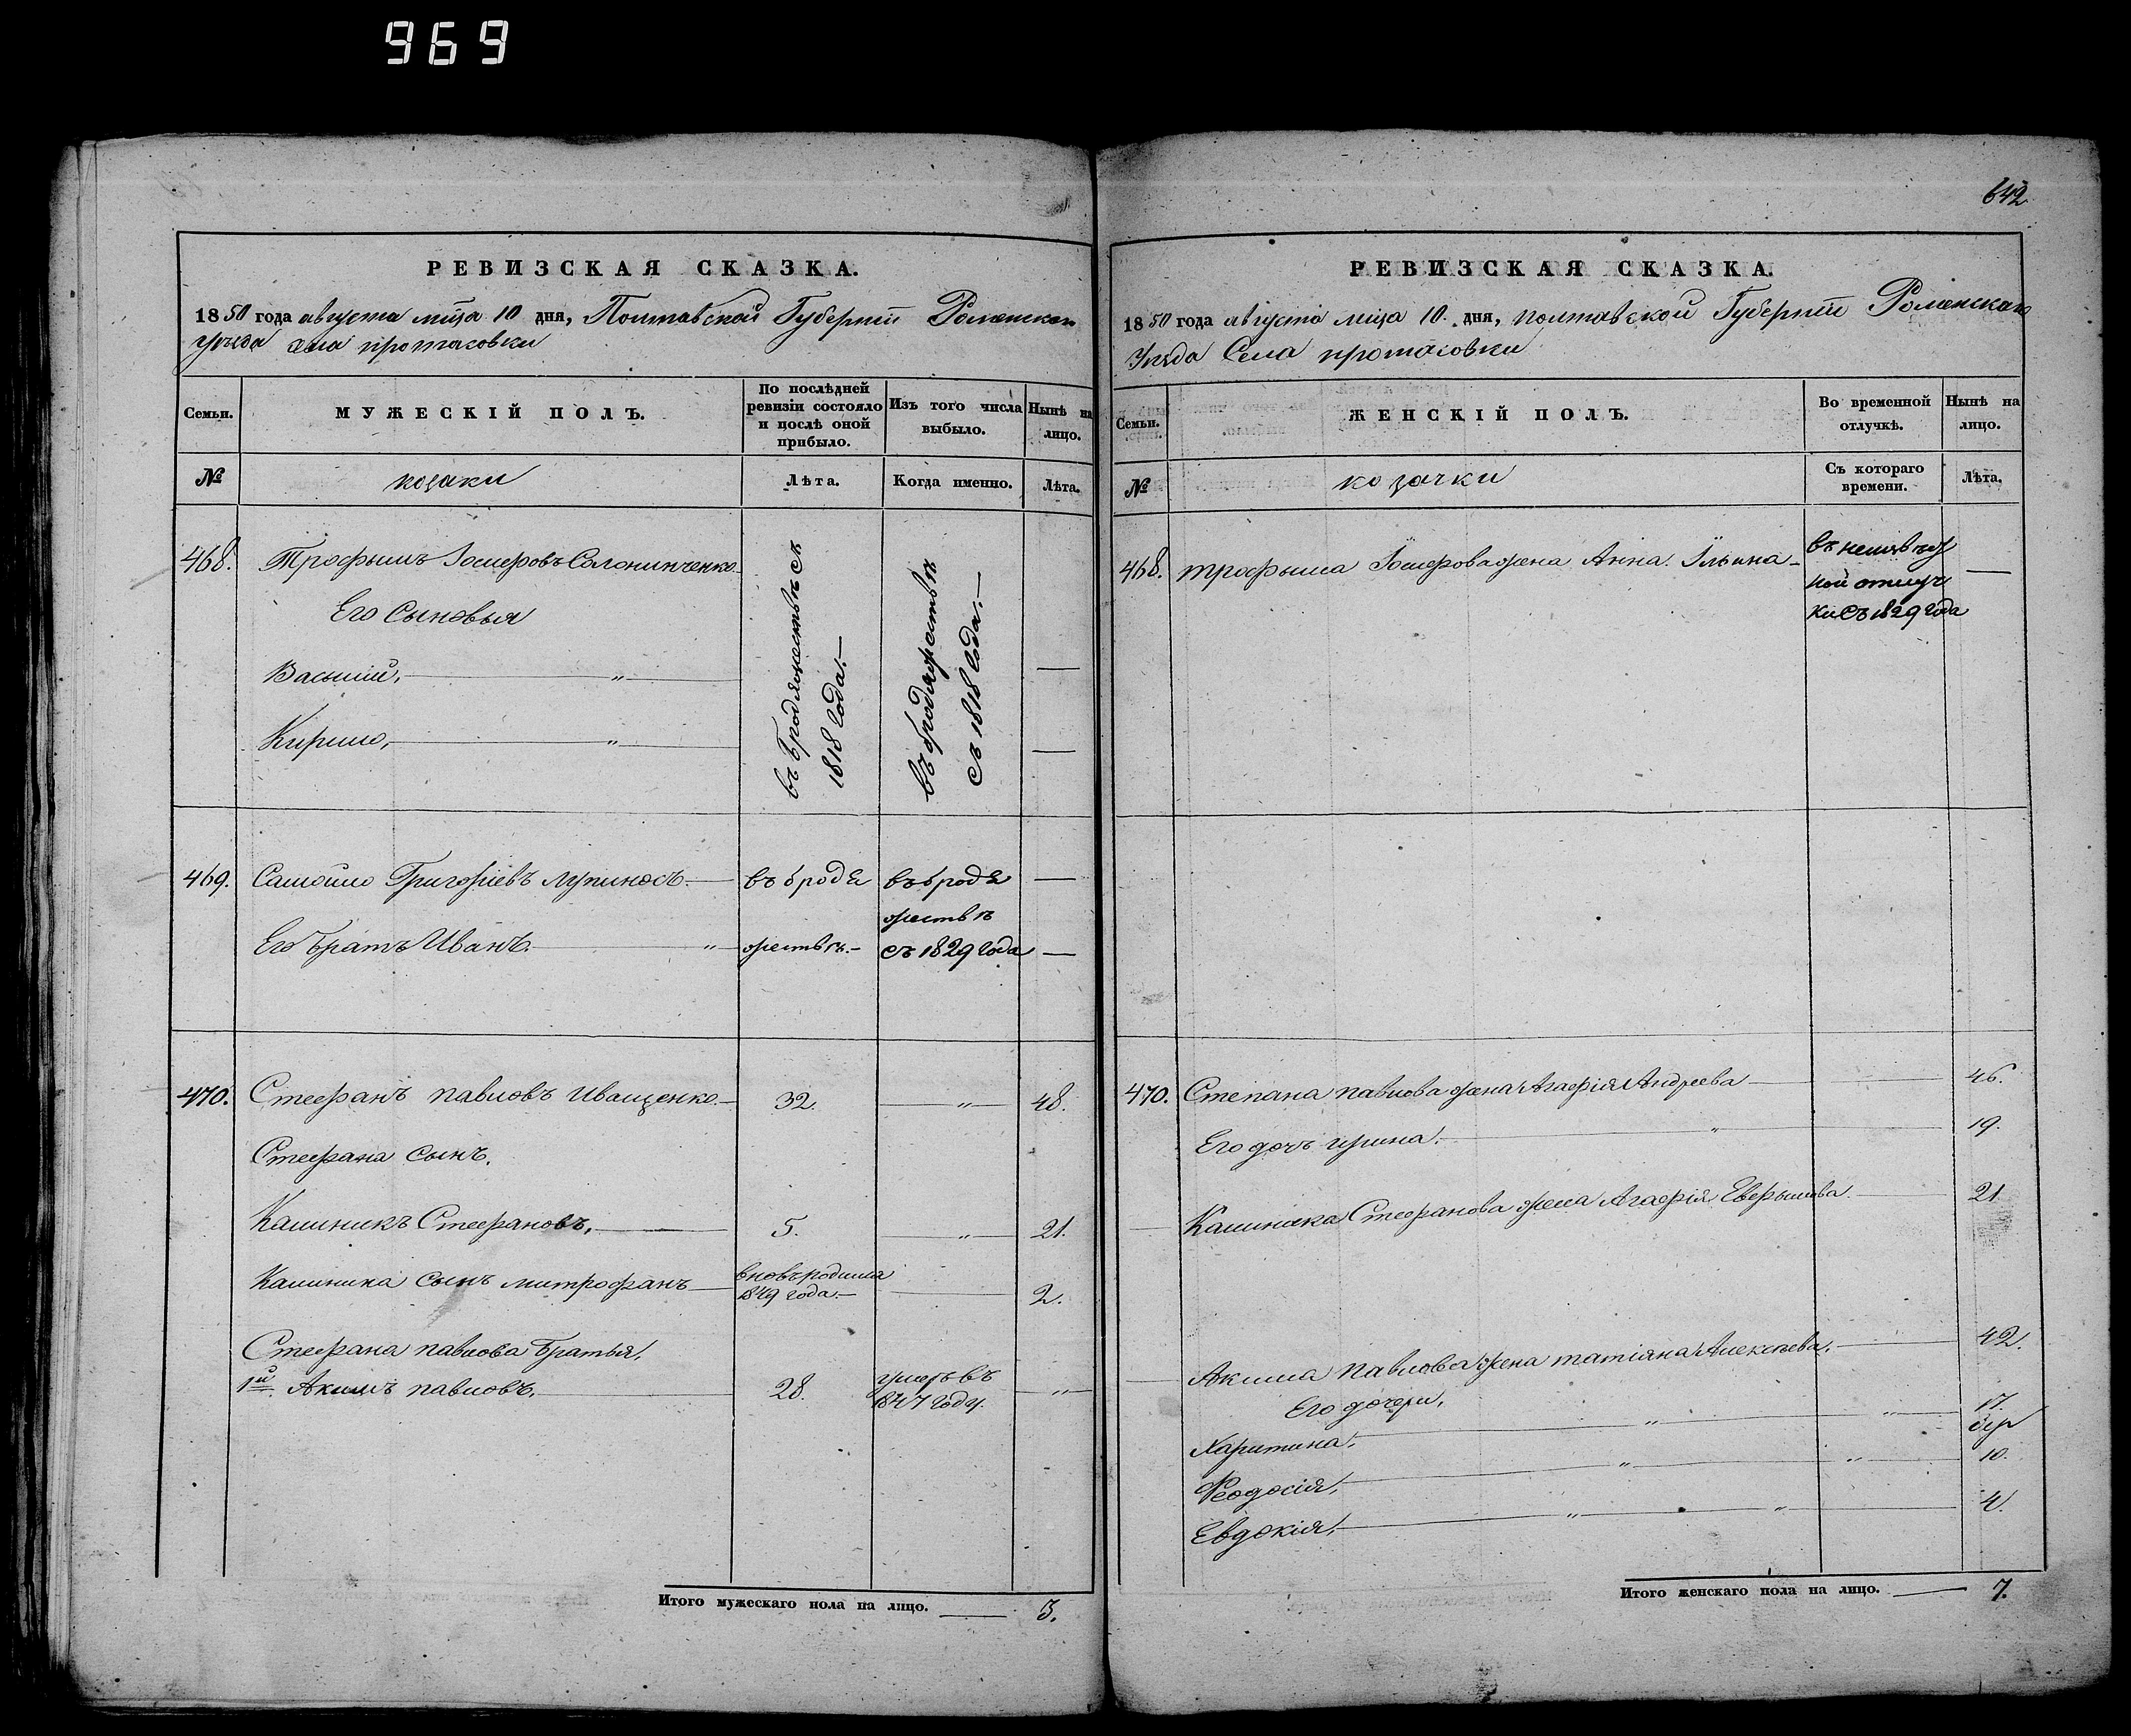 969
642
РЕВИЗСКАЯ СКАЗКА.
1850 года августа мѣца 10 дня, Полтавской Губерніи Роменскаго
уѣзда села протасовки
Семьи.
МУЖЕСКІЙ ПОЛЪ.
По послѣдней ревизіи состояло и послѣ оной прибыло.
Изъ того числа выбыло.
Нынѣ на лицо.
№
козаки
Лѣта.
Когда именно.
Лѣта.
468. Трофимъ Іосифовъ Солонинченко
Его Сыновья
Василій, — " —
Кирило, — " —
въ бродяжествѣ съ
1818 года. —
въ бродяжествѣ
съ 1818 года. —
469. Самойло Григоріевъ Лупиносъ. — въ бродя въ бродя —
жествѣ
Его братъ Иванъ. — " жествѣ. — съ 1829 года —
470. Стефанъ павловъ Иващенко. — 32. — " — 48.
Стефана сынъ.
Калиникъ Стефановъ, — 5. — " — 21.
Калиника сынъ митрофанъ — вновь родился
1849 года. — — 2.
Стефана павлова братья,
1й. Акимъ павловъ. — 28. умеръ въ
1847 году. — " —
Итого мужескаго пола на лицо. — 3.
РЕВИЗСКАЯ СКАЗКА.
1850 года августа мѣца 10. дня, полтавской Губерніи Роменскаго
Уезда Села протасовки
Семьи.
ЖЕНСКІЙ ПОЛЪ.
Во временной отлучкѣ.
Нынѣ на лицо.
№
козачки
Съ котораго времени.
Лѣта.
468. трофима Іосифова жена Анна Ильина — —
ной отлуч
ки съ 1829 года
470. Степана павлова жена Агафія Андреева — 46.
Его дочь ирина. — " — 19.
Калиника Стефанова жена Агафія — 21
Акима павлова жена татіана Алексѣева. — 42.
Его дочери,
Харитина, — " — " — 17.
Феодосія, — " — " — 10.
Евдокія, — " — " — 4.
Итого женскаго пола на лицо. — 7.